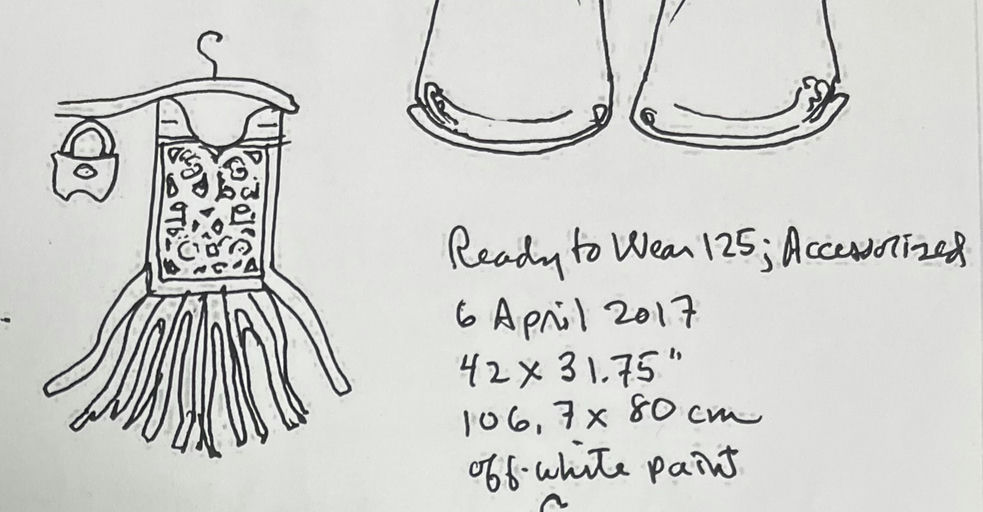 Ready to Wear 125; Accessorized
6 April 2017
42 x 31.75"
106.7 x 80 cm
off-white paint